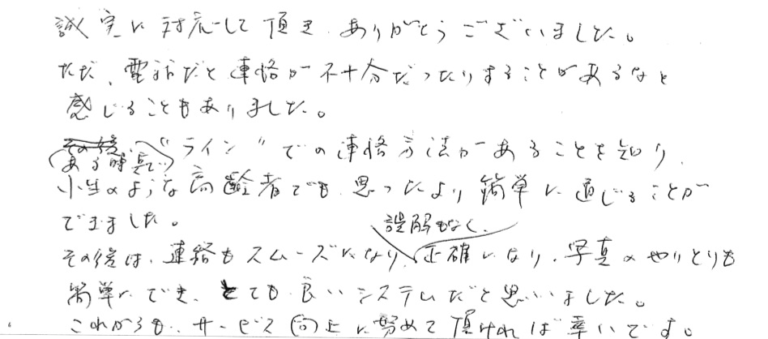 誠実に対応して頂き、ありがとうございました。
ただ、電話だと連絡が不十分だったりすることがあるなと
感じることもありました。
ある時点で、"ライン"での連絡方法があることを知り、
小生のような高齢者でも、思ったより簡単に通じることが
できました。
誤解もなく、
その後は、連絡もスムーズになり、正確になり、写真のやりとりも
簡単にでき、とても良いシステムだと思いました。
これからも、サービス向上に努めて頂ければ幸いです。